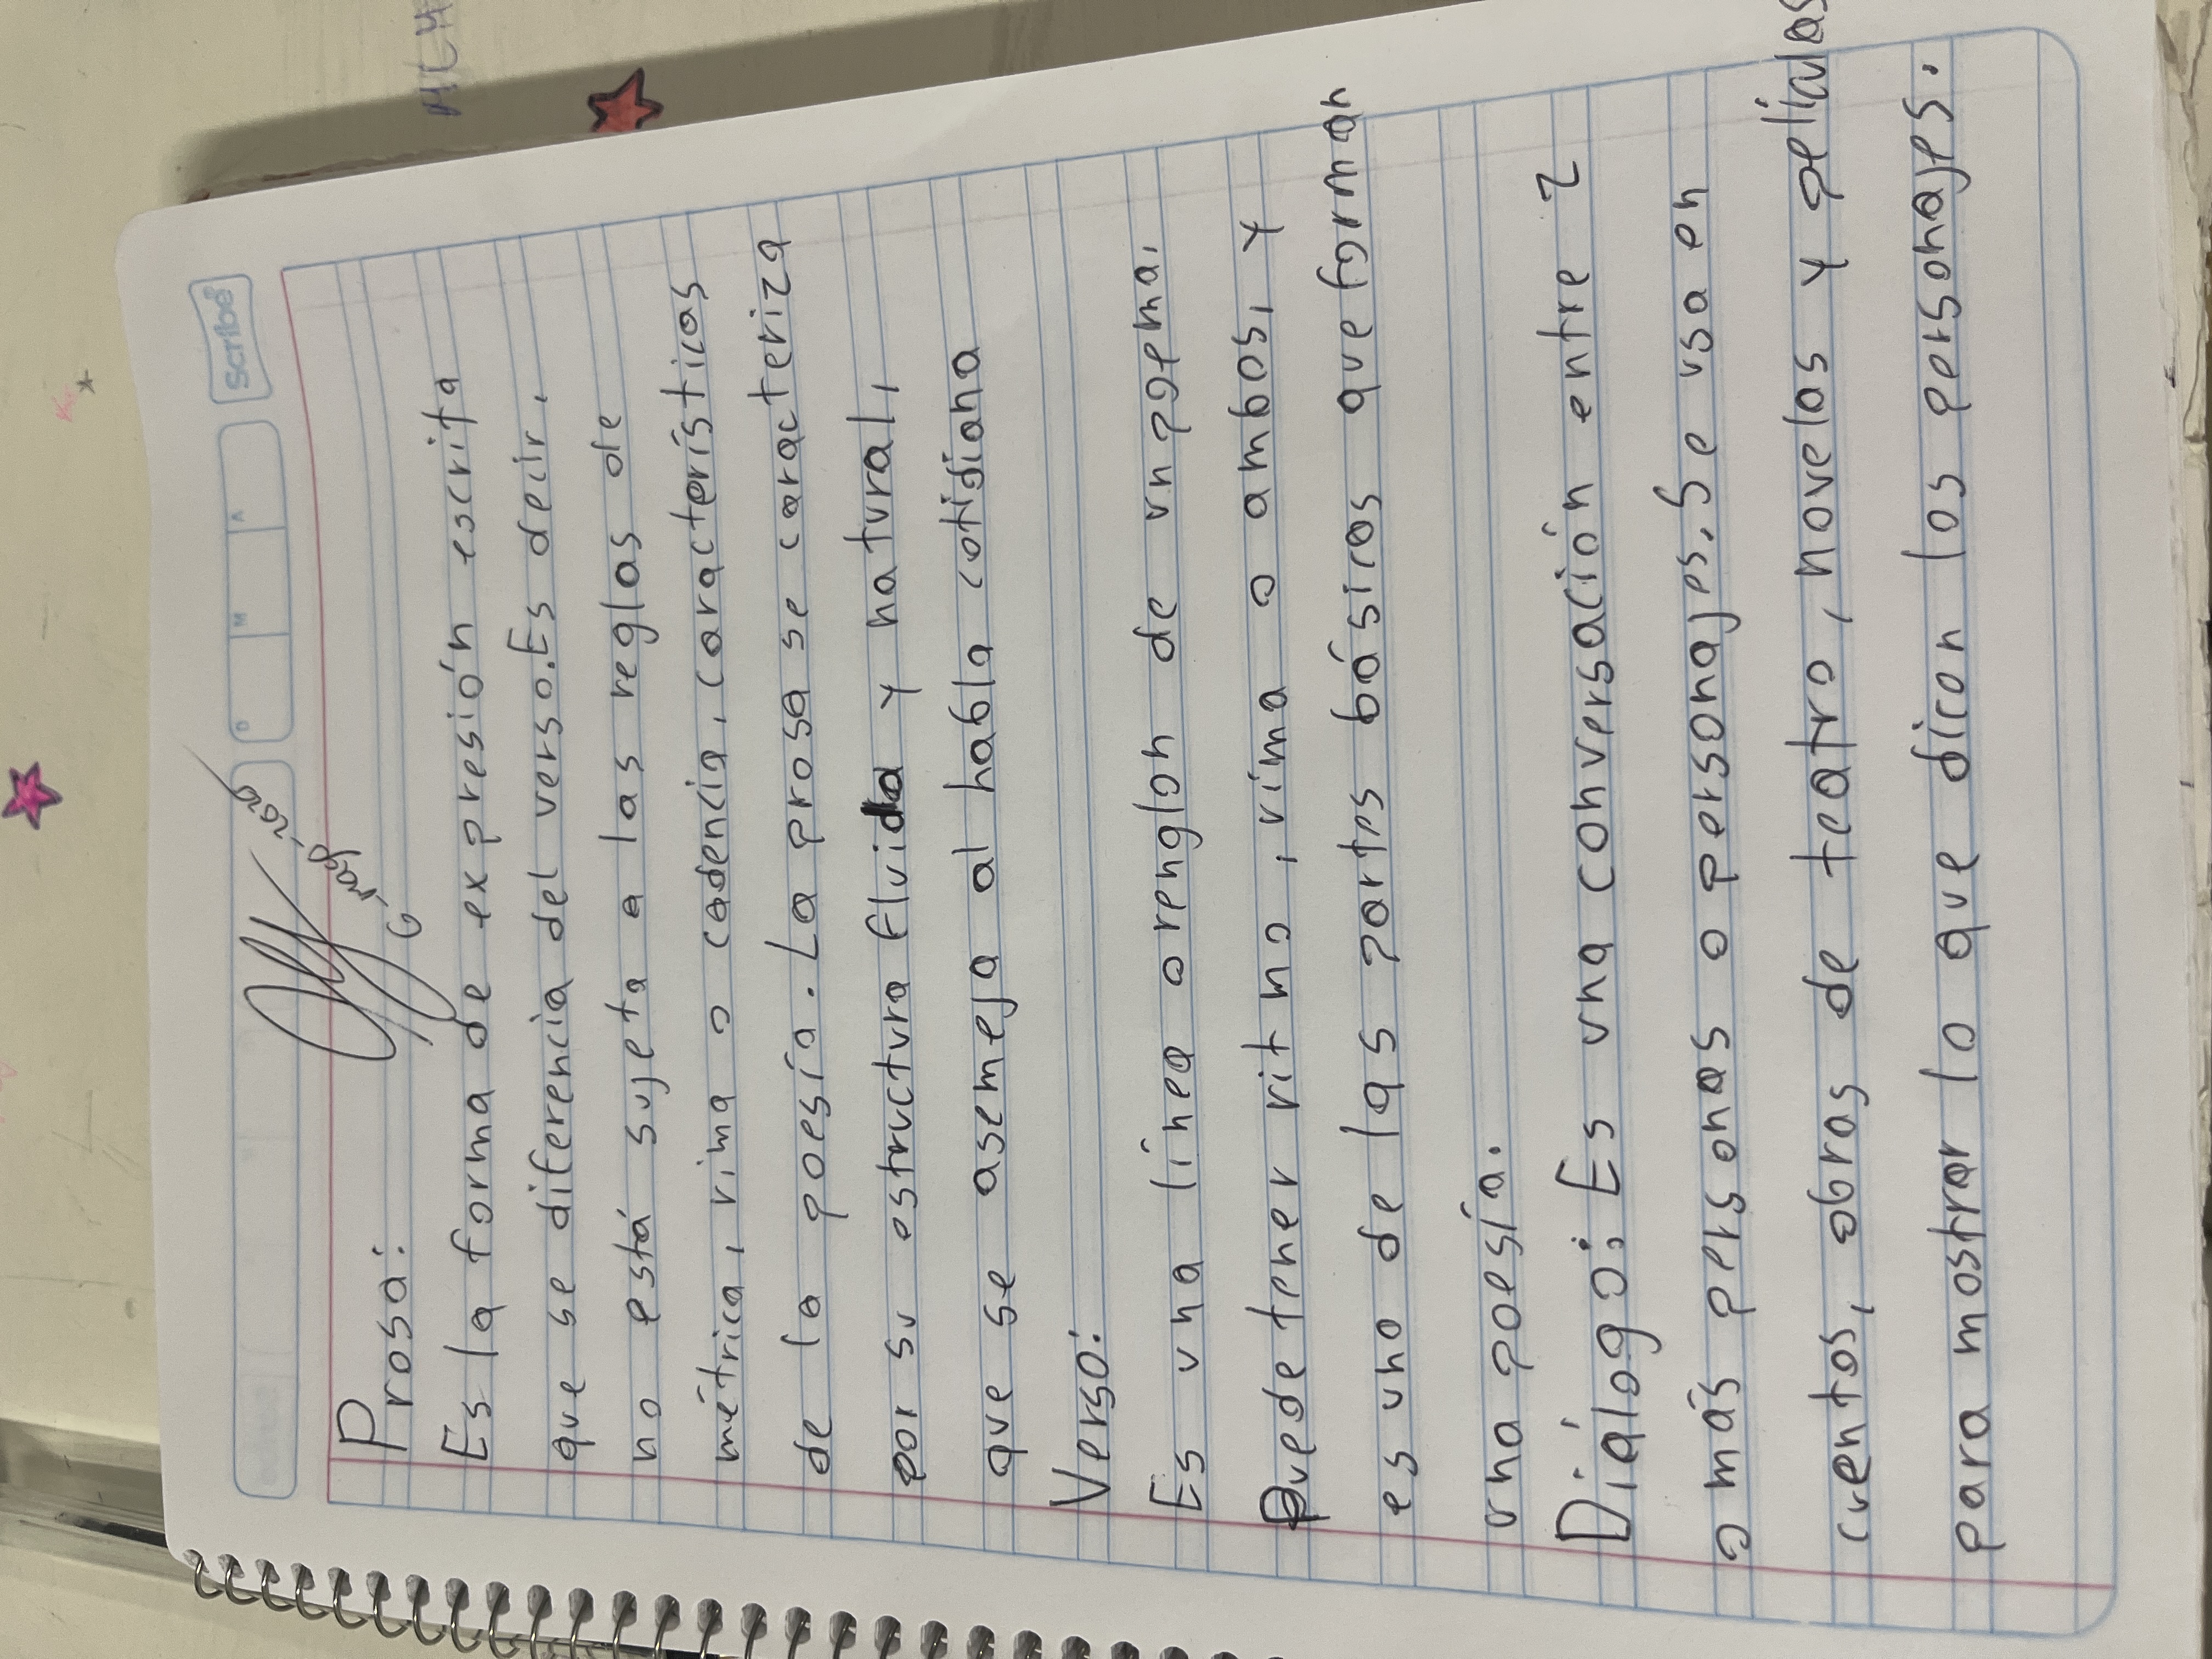 Scribe
D M A
Prosa:
Es la forma de expresión escrita
que se diferencia del verso. Es decir,
no está sujeta a las reglas de
métrica, rima o cadencia, características
de la poesía. La prosa se caracteriza
por su estructura fluida y natural,
que se asemeja al habla cotidiana
Verso:
Es una línea o renglon de un poema.
Puede tener ritmo, rima o ambos, y
es uno de las partes básicas que forman
una poesía.
Diálogo: Es una conversación entre 2
o más personas o personajes. Se usa en
cuentos, obras de teatro, novelas y peliculas
para mostrar lo que dicen los personajes.